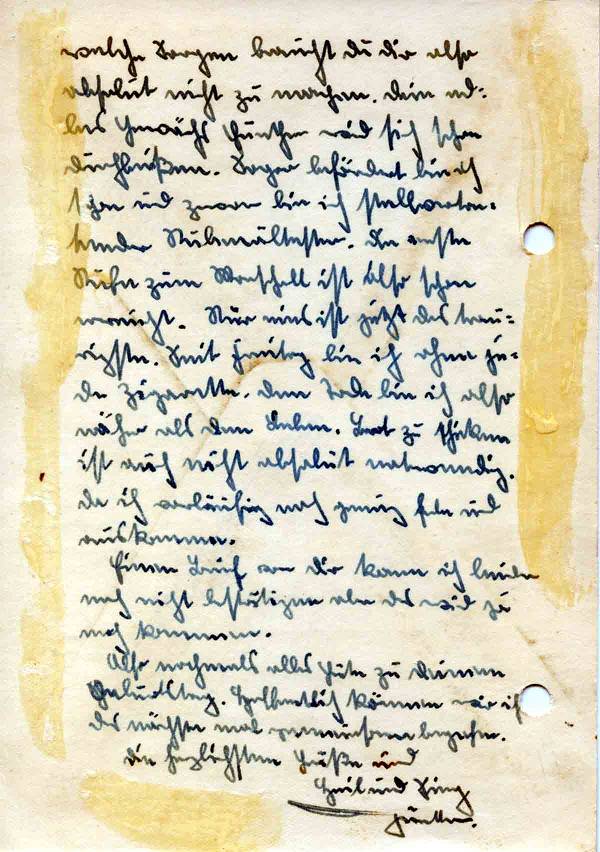 welche Sorgen brauchst du dir also
absolut nicht zu machen. Dein ed-
les Gewächs Günther wird sich schon
durchbeißen. Sogar befördert bin ich
schon und zwar bin ich stellvertre-
tender Stubenältester. Die erste
Stufe zum Marschall ist also schon
erreicht. Nur eins ist jetzt das trau-
rigste. Seit Freitag bin ich ohne je-
de Zigarette. Dem Tode bin ich also
näher als dem Leben. Brot zu schicken
ist auch nicht absolut notwendig.
da ich vorläufig noch genug habe und
auskomme.
Einen Brief von dir kann ich leider
noch nicht bestätigen aber das wird ja
noch kommen.
Also nochmals alles Gute zu Deinem
Geburtstag. Hoffentlich können wir ihn
das nächste mal gemeinsam begehen.
Die herzlichsten Grüße und
Heil und Sieg
Günther.